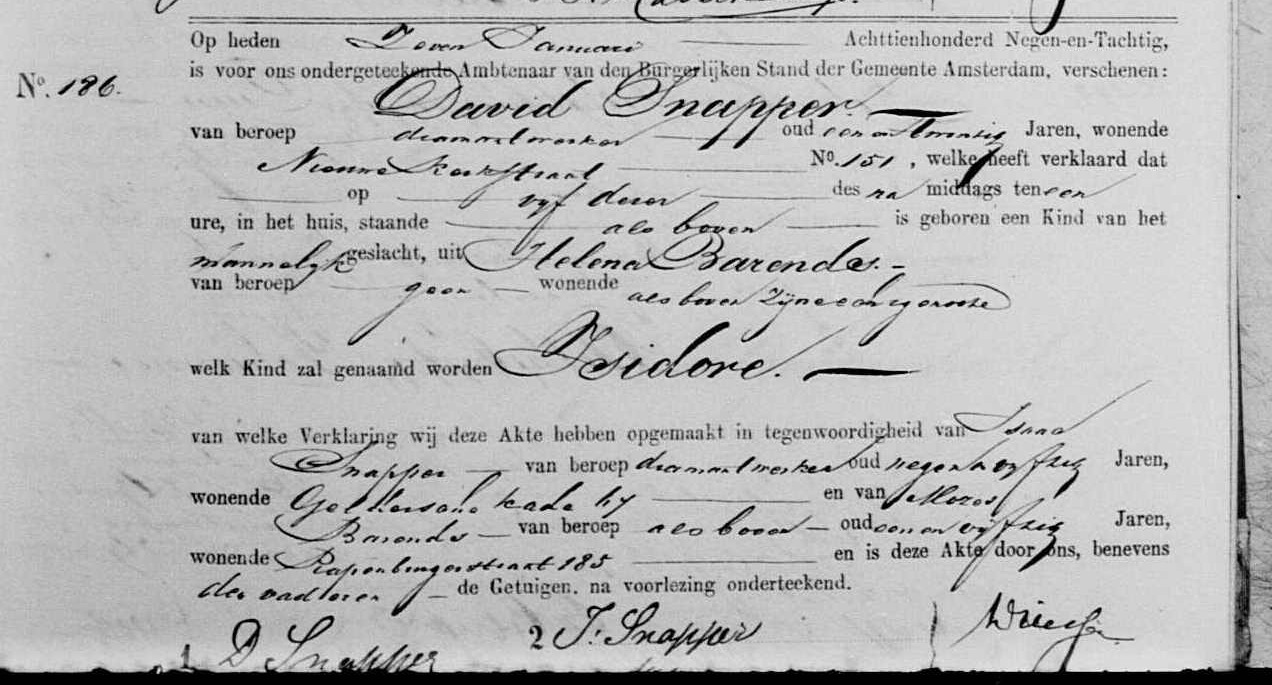 Op heden Zeven Januari Achttienhonderd Negen-en-Tachtig,
is voor ons ondergeteekende Ambtenaar van den Burgerlijken Stand der Gemeente Amsterdam, verschenen:
No. 186.
David Snapper.
van beroep diamantwerker oud een en twintig Jaren, wonende
Nieuwe Kerkstraat No. 151, welke heeft verklaard dat
op vyf dezer des na middags ten een
ure, in het huis, staande als boven is geboren een Kind van het
mannelyk geslacht, uit Helena Barendes.
van beroep geen wonende als boven zyne echtgenoote
welk Kind zal genaamd worden Isidore.
van welke Verklaring wij deze Akte hebben opgemaakt in tegenwoordigheid van Isaac
Snapper van beroep diamantwerker oud negen en vyftig Jaren,
wonende Geldersche kade en van Mozes
Barends van beroep als boven oud een en vyftig Jaren,
wonende Rapenburgerstraat 185 en is deze Akte door ons, benevens
de Getuigen, na voorlezing onderteekend.
1 D Snapper 2 I: Snapper